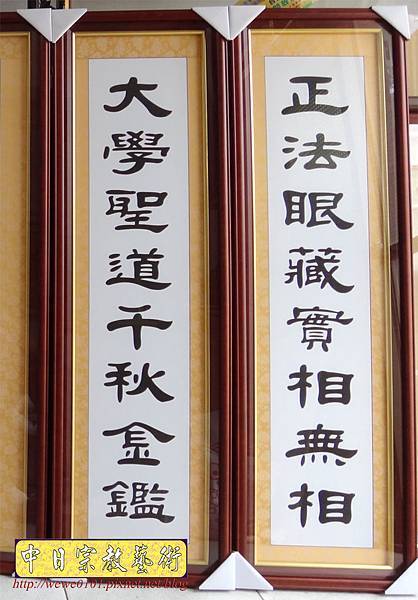 正法眼藏實相無相
大學聖道千秋金鑑
中日宗教藝術
http://wewe0101.pixnet.net/blog